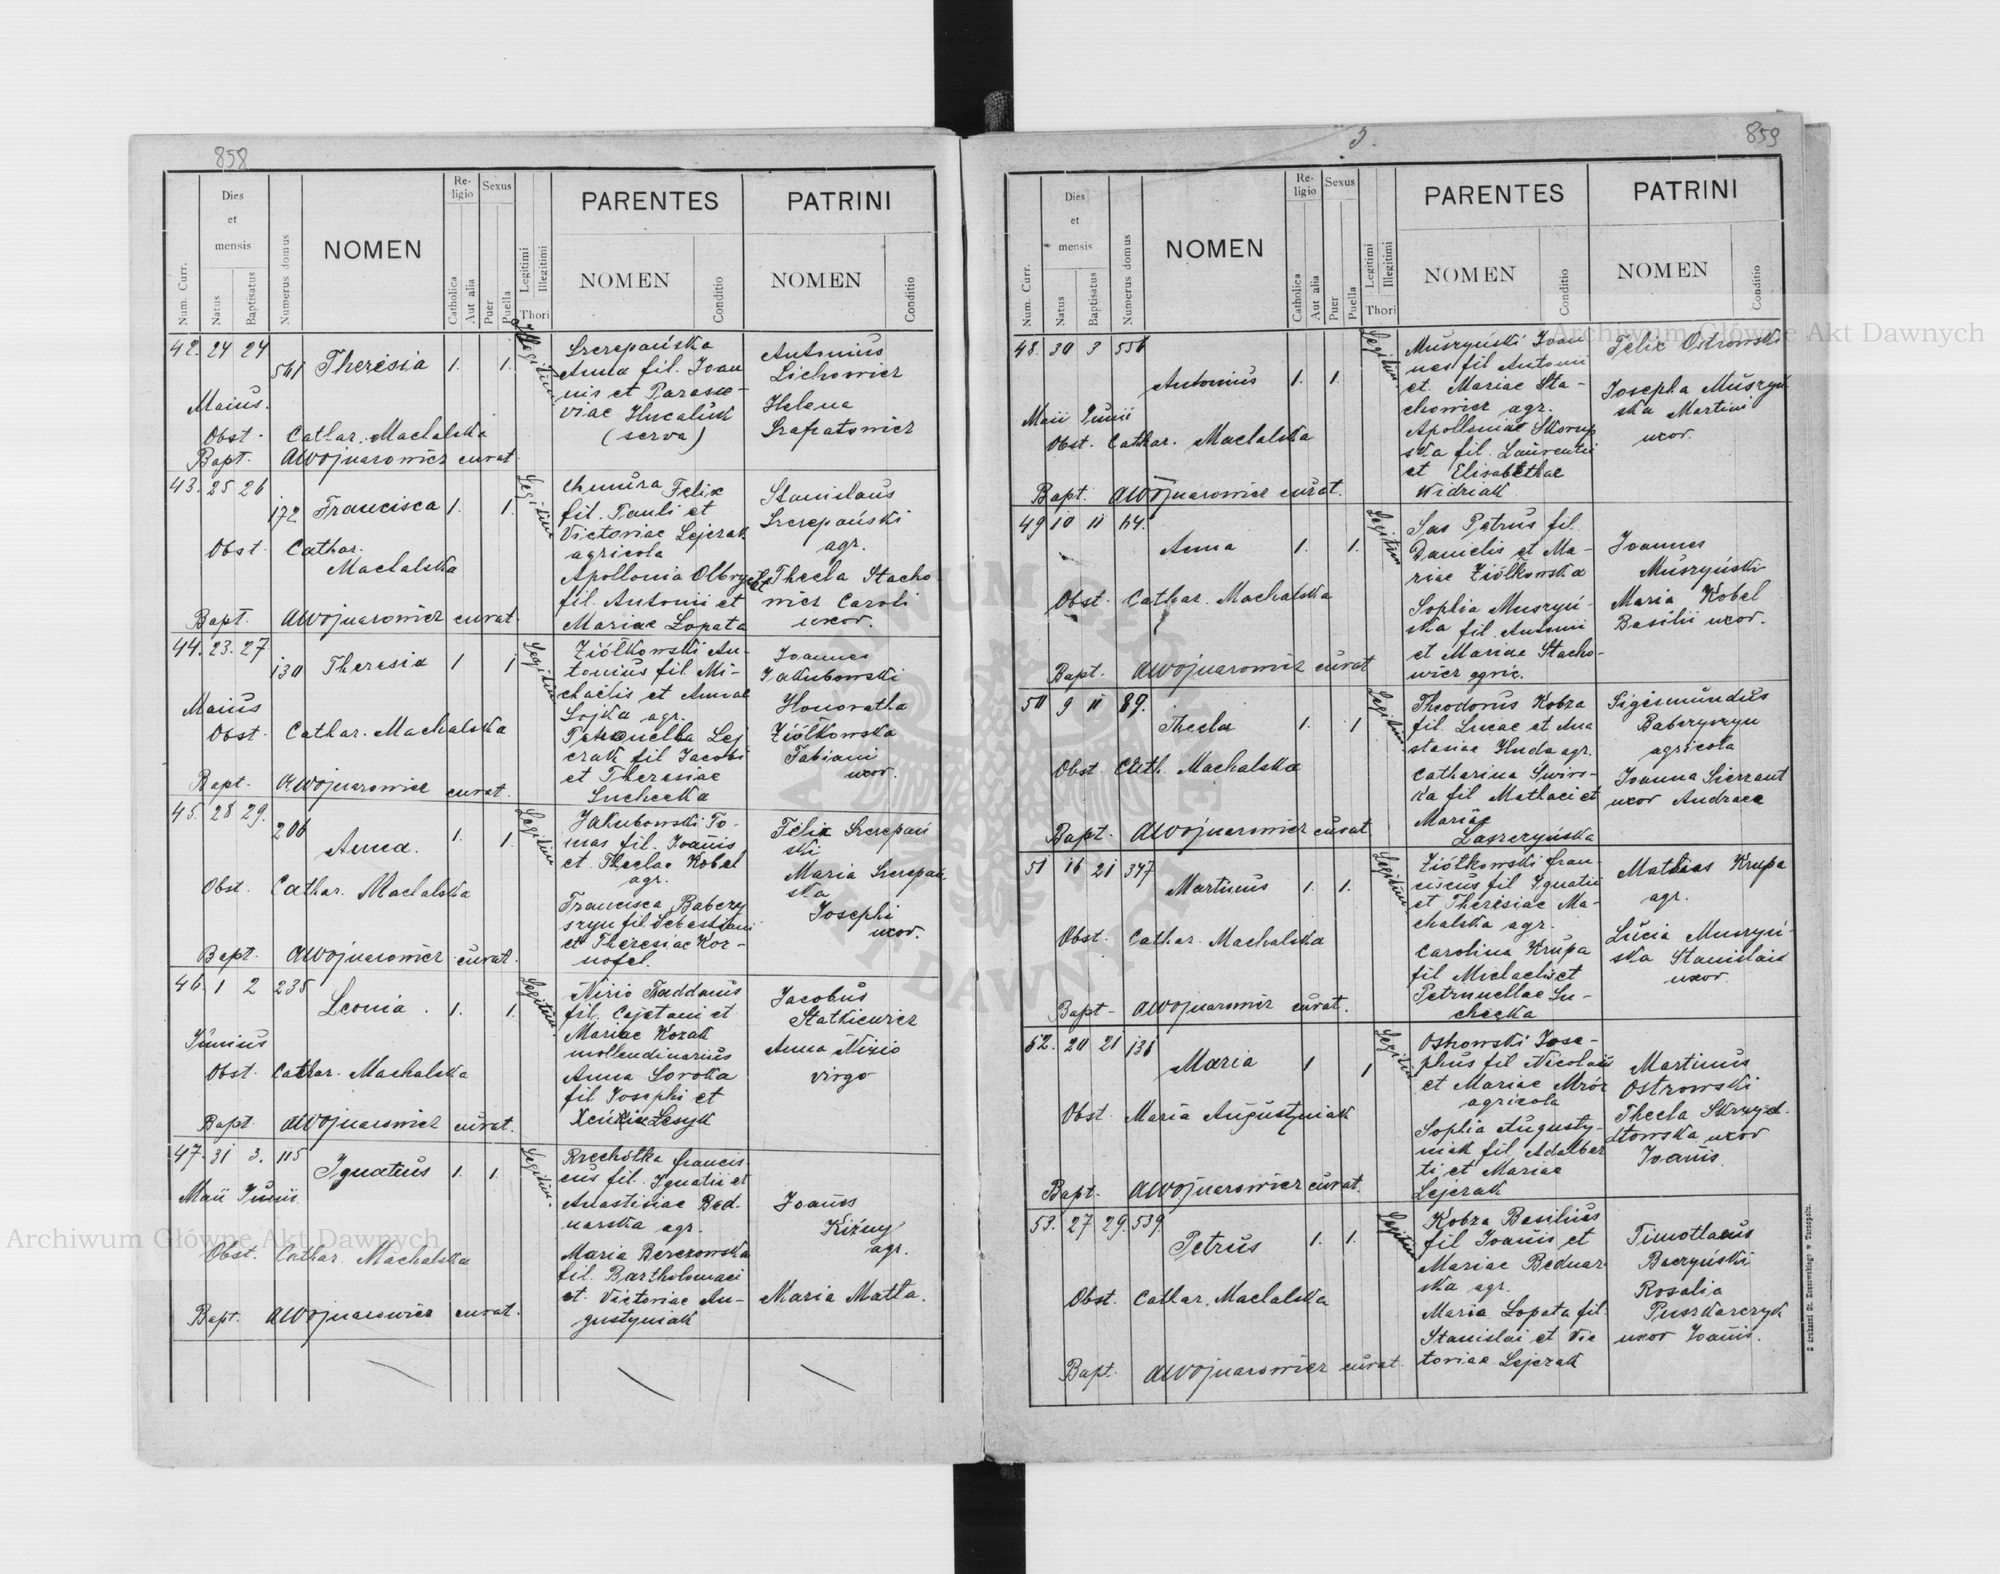 858
Dies et mensis
Religio
Sexus
PARENTES
PATRINI
Num. Curr.
Natus
Baptisatus
Numerus domus
NOMEN
Catholica
Aut alia
Puer
Puella
Legitimi
Illegitimi
Thori
NOMEN
Conditio
NOMEN
Conditio
42. 24 24
561 Theresia 1. 1.
Maius.
Obst. Cathar. Machalska
Bapt. AWojnarowicz curat.
Szczepańska
Anna fil. Joan
nis et Parasce-
viae Hucaluk
(serva)
Antonius
Lichowicz
Helena
Szafratowicz
43. 25 26
172 Francisca 1. 1.
Legitim
Obst. Cathar.
Machalska
Bapt. AWojnarowicz curat.
Chmura Felix
fil. Pauli et
Victoriae Lejczak
agricola
Apollonia Olbrycht
fil. Antonii et
Mariae Łopata
Stanislaus
Szczepański
agr.
Thecla Stacho
wicz Caroli
uxor.
44. 23. 27
130 Theresia 1 1
Legitim
Maius
Obst. Cathar. Machalska
Bapt. AWojnarowicz curat.
Ziółkowski An-
tonius fil. Mi-
chaelis et Annae
Sojka agr.
Petronella Lej
czak fil Jacobi
et Theresiae
Suchecka
Joannes
Jakubowski
Honoratha
Ziółkowska
Fabiani
uxor.
45. 28 29.
206
Anna. 1. 1.
Legitim
Obst. Cathar. Machalska
Bapt. AWojnarowicz curat.
Jakubowski To-
mas fil. Joanis
et Theclae Kobel
agr.
Francisca Babczy
szyn fil. Sebastiani
et Theresiae Kor-
nofel.
Felix Szczepań
ski
Maria Szczepań
ska
Josephi
uxor.
46. 1 2 235
Leonia. 1. 1.
Legitim.
Junius
Obst. Cathar. Machalska
Bapt. AWojnarowicz curat.
Nizio Thaddaeus
fil. Cajetani et
Mariae Kozak
mollendinarius
Anna Soroka
fil Josephi et
Xeniae Lesyk
Jacobus
Statkiewicz
Anna Nizio
virgo
47. 31 3. 115
Ignatius 1. 1.
Legitim.
Maii Junii
Obst. Cathar. Machalska
Bapt. AWojnarowicz curat.
Krzechotka francis
cus fil. Ignatii et
Anastisiae Bed-
narska agr.
Maria Berezowska
fil. Bartholomaei
et. Victoriae Au-
gustyniak
Joanes
Kiżny
agr.
Maria Matła.
3.
859
Dies et mensis
Religio
Sexus
PARENTES
PATRINI
Num. Curr.
Natus
Baptisatus
Numerus domus
NOMEN
Catholica
Aut alia
Puer
Puella
Legitimi
Illegitimi
Thori
NOMEN
Conditio
NOMEN
Conditio
48. 30 3 556
Antonius 1. 1.
Legitim.
Maii Junii
Obst. Cathar. Machalska
Bapt. AWojnarowicz curat.
Muszyński Joan
nes fil Antonii
et. Mariae Sta-
chowicz agr.
Apolloniae Skorup
ska fil. Laurentii
et Elisabethae
Widziak
Felix Ostrowski
Josepha Muszyń
ska Martini
uxor.
49 10 11 64.
Anna 1. 1.
Legitim
Obst. Cathar. Machalska
Bapt. AWojnarowicz curat
Sas Petrus fil.
Danielis et Ma-
riae Ziółkowska
Sophia Muszyń-
ska fil. Antonii
et Mariae Stacho-
wicz agric.
Joannes
Muszyński
Maria Kobel
Basilii uxor.
50 9 11 89.
Thecla 1. 1
Legitim.
Obst. Cath. Machalska
Bapt. AWojnarowicz curat
Theodorus Kobza
fil. Lucae et Ana
stasiae Huda agr.
Catharina Swirs-
ka fil Mathaei et
Mariae
Laszczyńska
Sigismundus
Babczyszyn
agricola
Joanna Sierzant
uxor Andreae
51 16 21 347
Martinus 1. 1.
Legitim
Obst. Cathar. Machalska
Bapt- AWojnarowicz curat.
Ziółkowski fran-
ciscus fil Ignatii
et Theresiae Ma-
chalska agr.
Carolina Krupa
fil Michaelis et
Petrunellae Su-
checka
Mathias Krupa
agr.
Lucia Muszyń-
ska Stanislai
uxor.
52. 20 21 131
Maria 1 1
Legitim
Obst Maria Augustyniak
Bapt. AWojnarowicz curat.
Ostrowski Jose-
phus fil Nicolaii
et Mariae Mróz
agricola
Sophia Augusty-
niak fil Adalber
ti et Mariae
Lejczak
Martinus
Ostrowski
Thecla Skrzyd-
łowska uxor
Joanis.
53. 27 29. 539.
Petrus 1. 1.
Legitim
Obst. Cathar. Machalska
Bapt. AWojnarowicz curat.
Kobza Basilius
fil Joanis et
Mariae Bednar-
ska agr.
Maria Lopata fil.
Stanislai et Vic
toriae Lejczak
Timotheus
Baczyński
Rosalia
Puszkarczyk
uxor Joanis.
Z drukarni St. Kossowskiego w Tarnopolu.
Archiwum Główne Akt Dawnych
Archiwum Główne Akt Dawnych